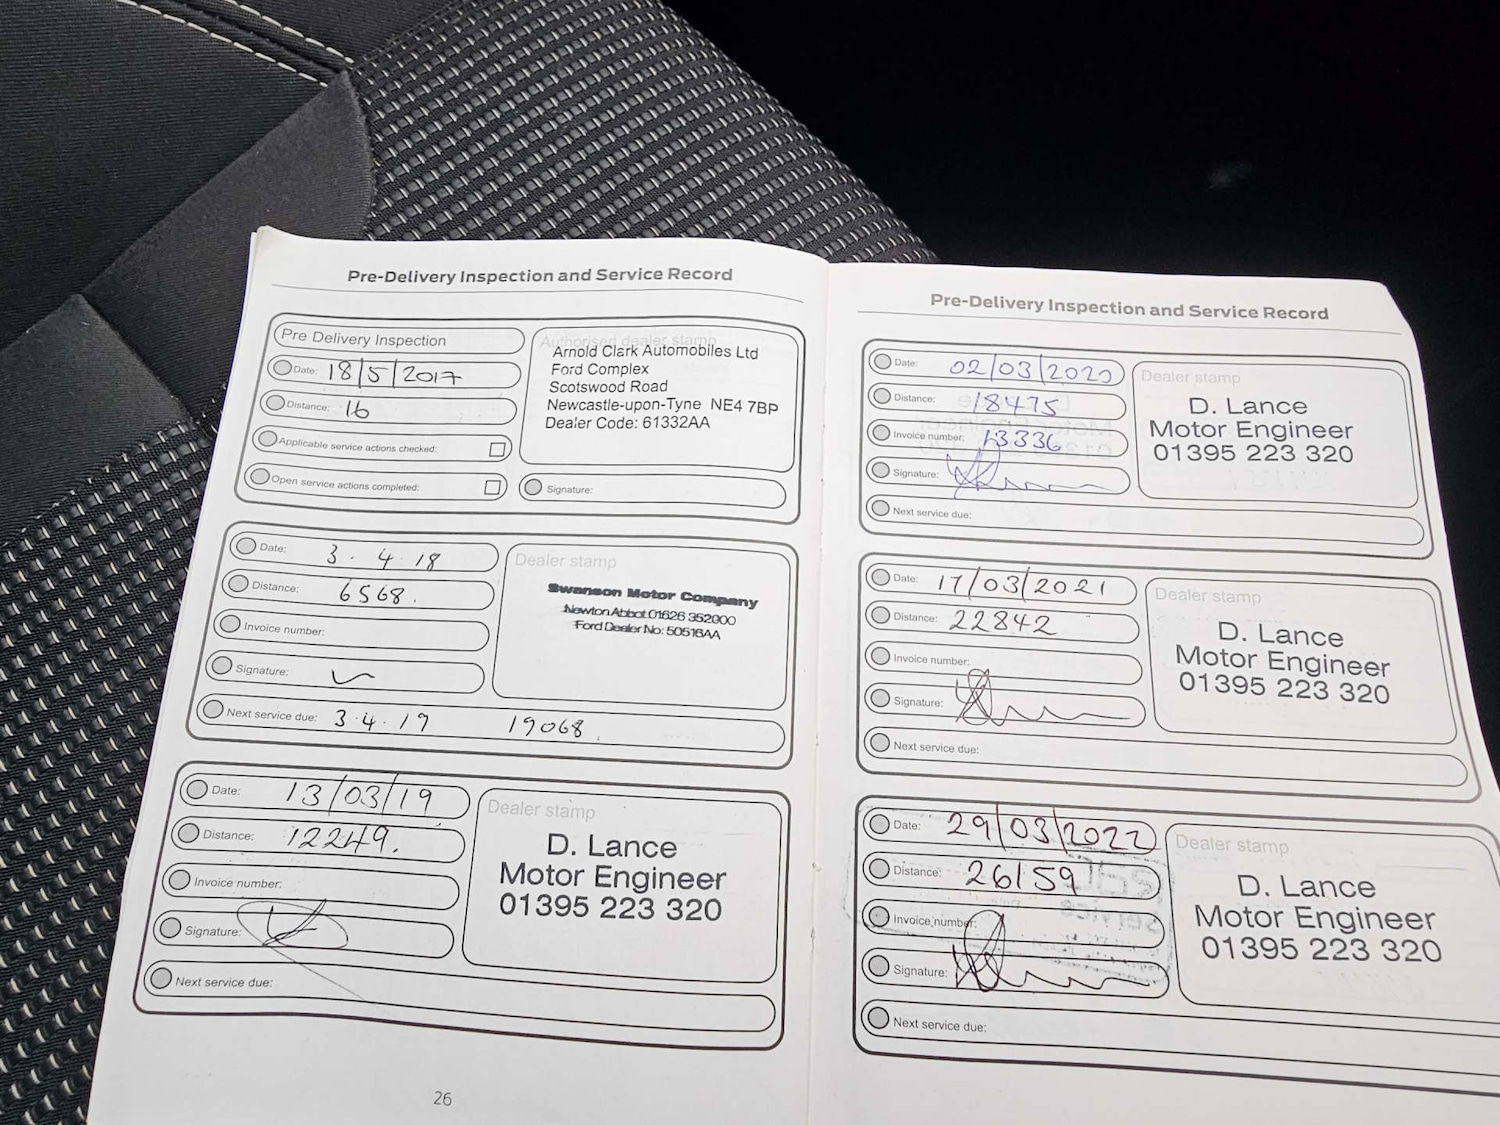 Pre-Delivery Inspection and Service Record
Pre Delivery Inspection
Date: 18/5/2017
Distance: 16
Applicable service actions checked:
Open service actions completed:
Authorised dealer stamp
Arnold Clark Automobiles Ltd
Ford Complex
Scotswood Road
Newcastle-upon-Tyne NE4 7BP
Dealer Code: 61332AA
Signature:
Date: 3.4.18
Distance: 6568.
Invoice number:
Signature:
Next service due: 3.4.19 19068.
Dealer stamp
Swanson Motor Company
Newton Abbot 01626 352000
Ford Dealer No: 50516AA
Date: 13/03/19
Distance: 12249.
Invoice number:
Signature:
Next service due:
Dealer stamp
D. Lance
Motor Engineer
01395 223 320
26
Pre-Delivery Inspection and Service Record
Date: 02/03/2020
Distance: 18475
Invoice number: 13336
Signature:
Next service due:
Dealer stamp
D. Lance
Motor Engineer
01395 223 320
Date: 17/03/2021
Distance: 22842
Invoice number:
Signature:
Next service due:
Dealer stamp
D. Lance
Motor Engineer
01395 223 320
Date: 29/03/2022
Distance: 26159
Invoice number:
Signature:
Next service due:
Dealer stamp
D. Lance
Motor Engineer
01395 223 320